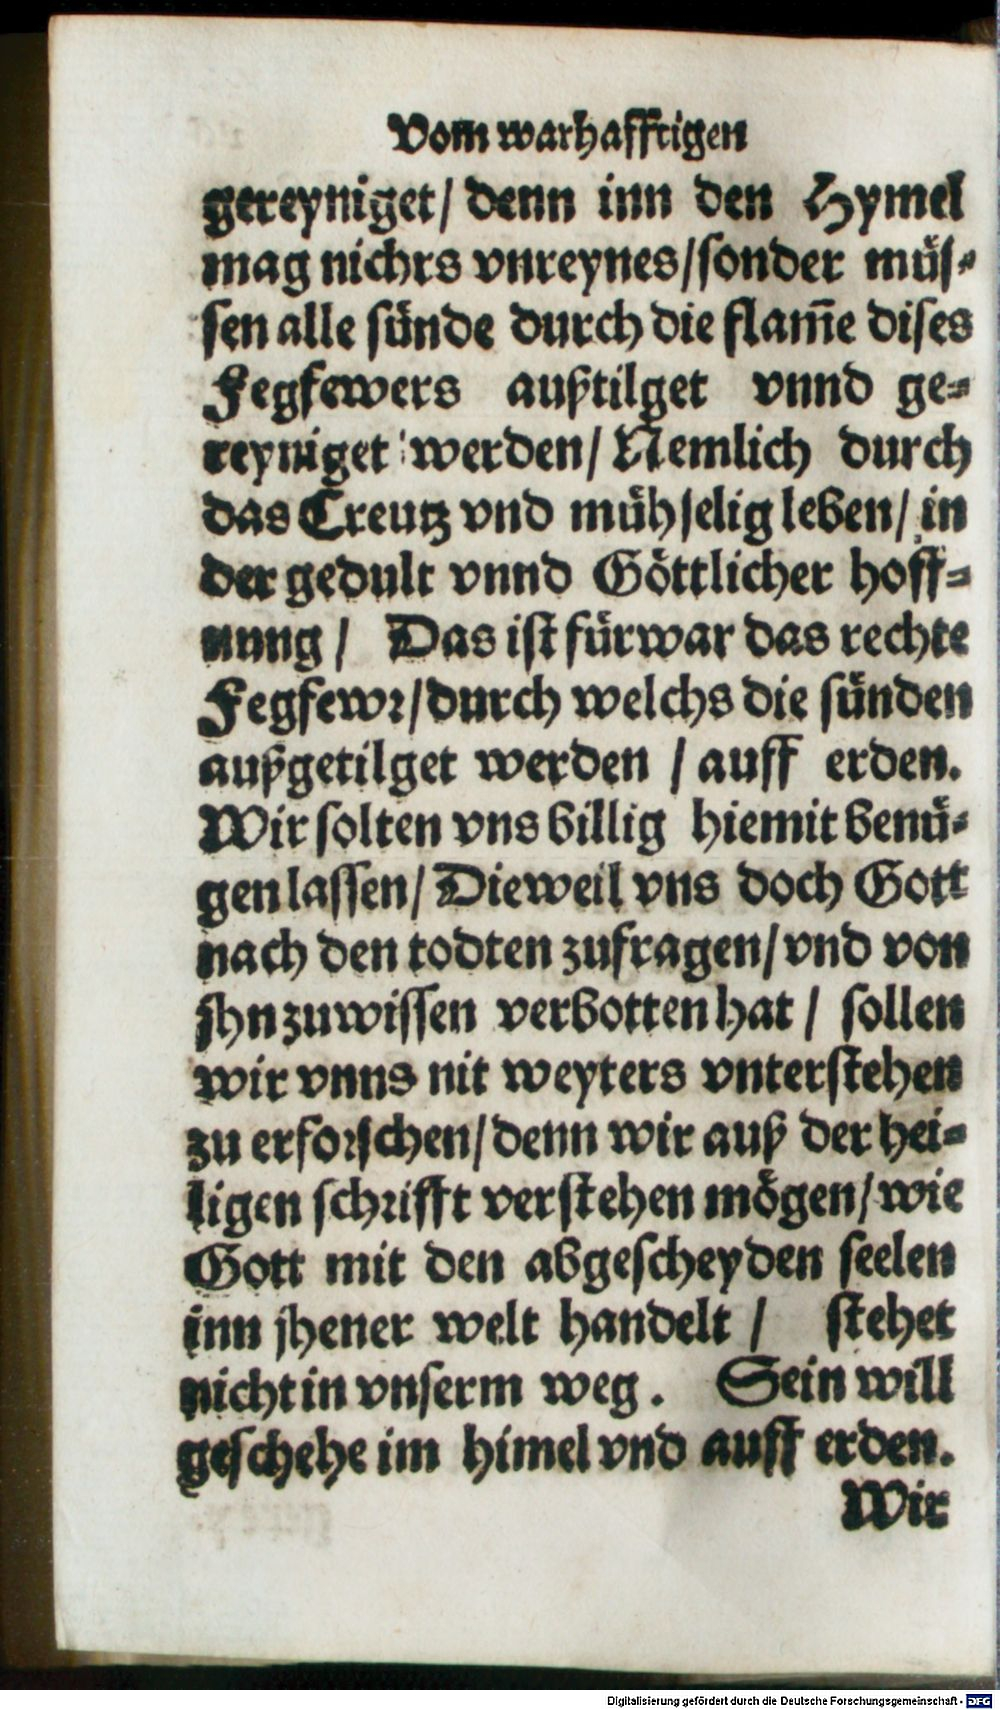 Vom warhafftigen
gereyniget/ denn inn den Hymel
mag nichts vnreynes/ sonder müs⸗
sen alle sünde durch die flam̄e dises
Fegfewers außtilget vnnd ge⸗
reyniget werden/ Nemlich durch
das Creutz vnd mühselig leben/ in
der gedult vnnd Göttlicher hoff⸗
nung/ Das ist fürwar das rechte
Fegfewꝛ/ durch welchs die sünden
außgetilget werden / auff erden.
Wir solten vns billig hiemit benü⸗
gen lassen/ Dieweil vns doch Gott
nach den todten zufragen/ vnd von
jhn zuwissen verbotten hat / sollen
wir vnns nit weyters vnterstehen
zu erfoꝛschen/ denn wir auß der hei⸗
ligen schꝛifft verstehen mögen/ wie
Gott mit den abgescheyden seelen
inn jhener welt handelt / stehet
nicht in vnserm weg. Sein will
geschehe im himel vnd auff erden.
Wir
Digitalisierung gefördert durch die Deutsche Forschungsgemeinschaft - DFG